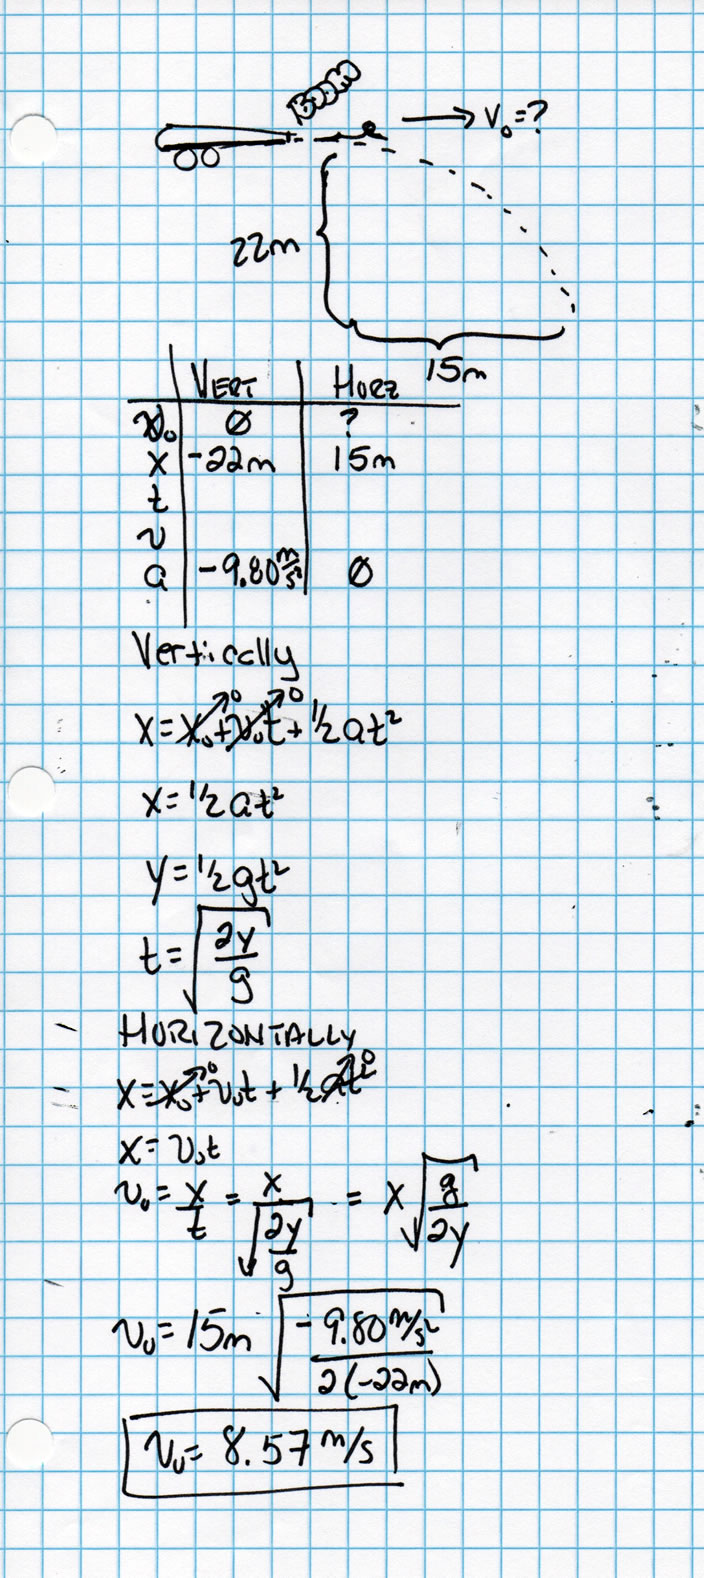 BOOOM
→ V₀=?
22m
15m
VERT HORZ
v₀ Ø ?
x -22m 15m
t
v
a -9.80 m/s² Ø
Vertically
x = x₀ + v₀t + 1/2 at²
0 0
x = 1/2 at²
y = 1/2 gt²
t = √(2y/g)
HORIZONTALLY
x = x₀ + v₀t + 1/2 at²
0 0
x = v₀t
v₀ = x/t = x/√(2y/g) = x√(g/2y)
v₀ = 15m √(-9.80 m/s²/2(-22m))
v₀ = 8.57 m/s